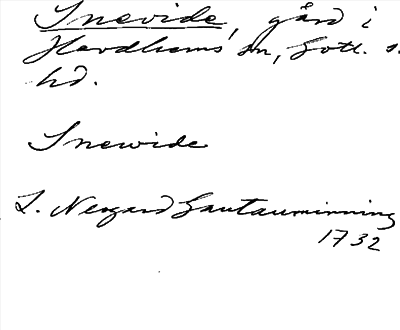 Snevide, gård i
Hardhems sn, Gotl. s.
hd.
Snewide
L. Neogard Gautauminning
1732